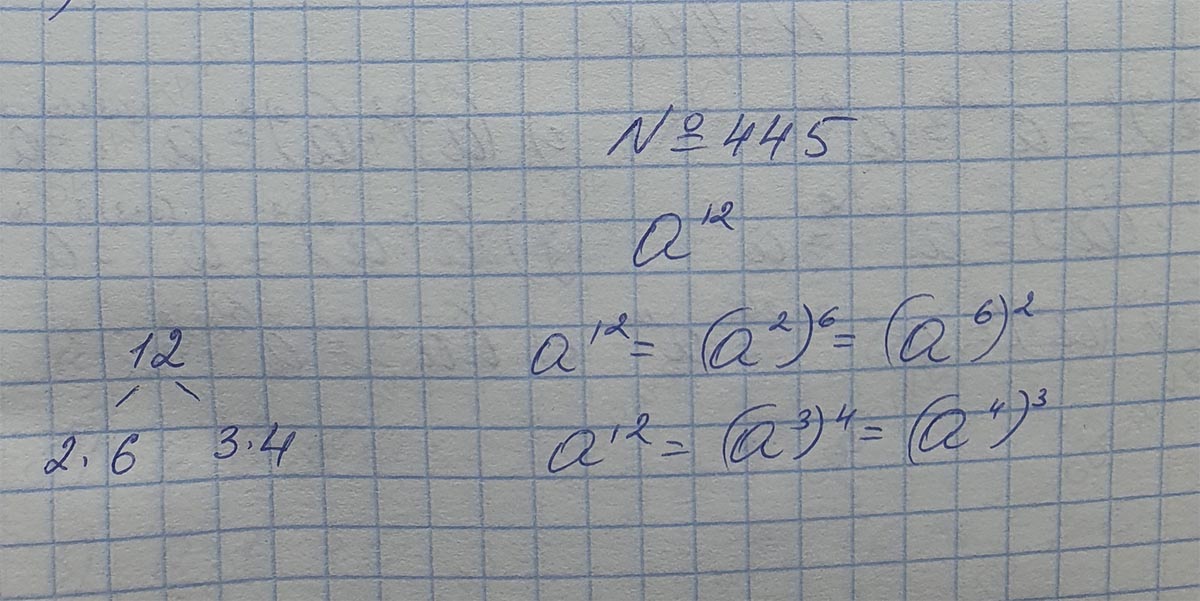 № 445
a¹²
12
2·6 3·4
a¹² = (a²)⁶ = (a⁶)²
a¹² = (a³)⁴ = (a⁴)³